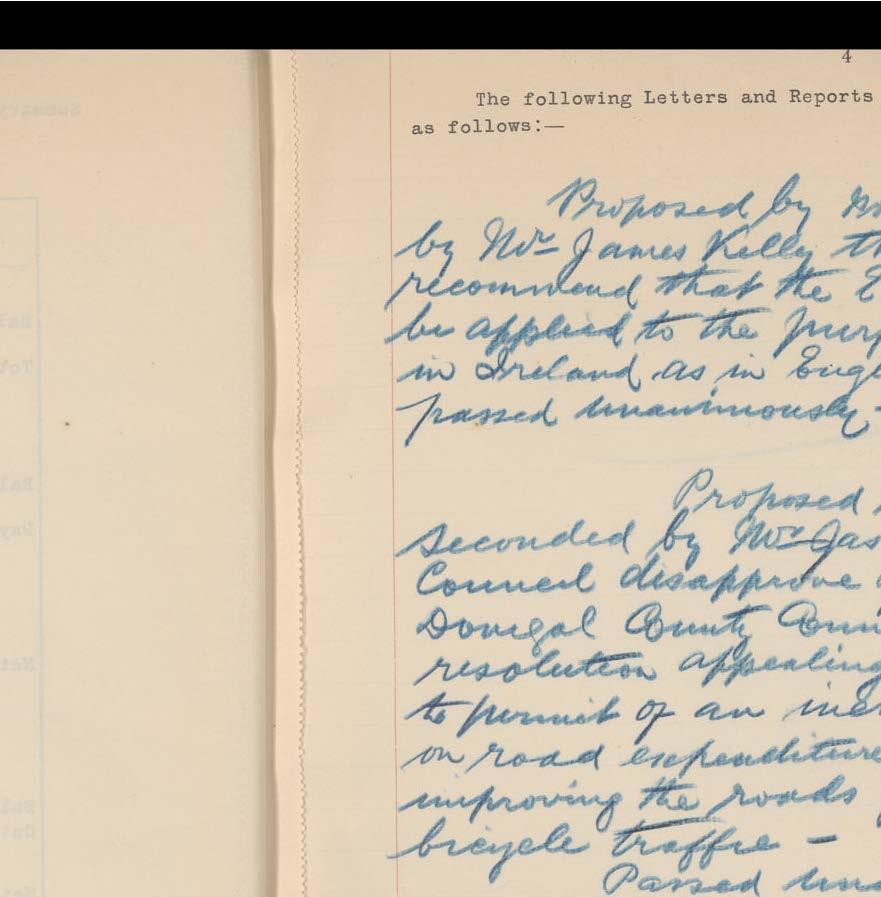 4
The following Letters and Reports
as follows:—
Proposed by
by Mr James Kelly
recommend that the
be applied to the
in Ireland as in
passed unanimously -
Proposed
seconded by Mr Jas
Council disapprove
Donegal County
resolution appealing
to permit of an
on road expenditure
improving the roads
bicycle traffic -
Passed